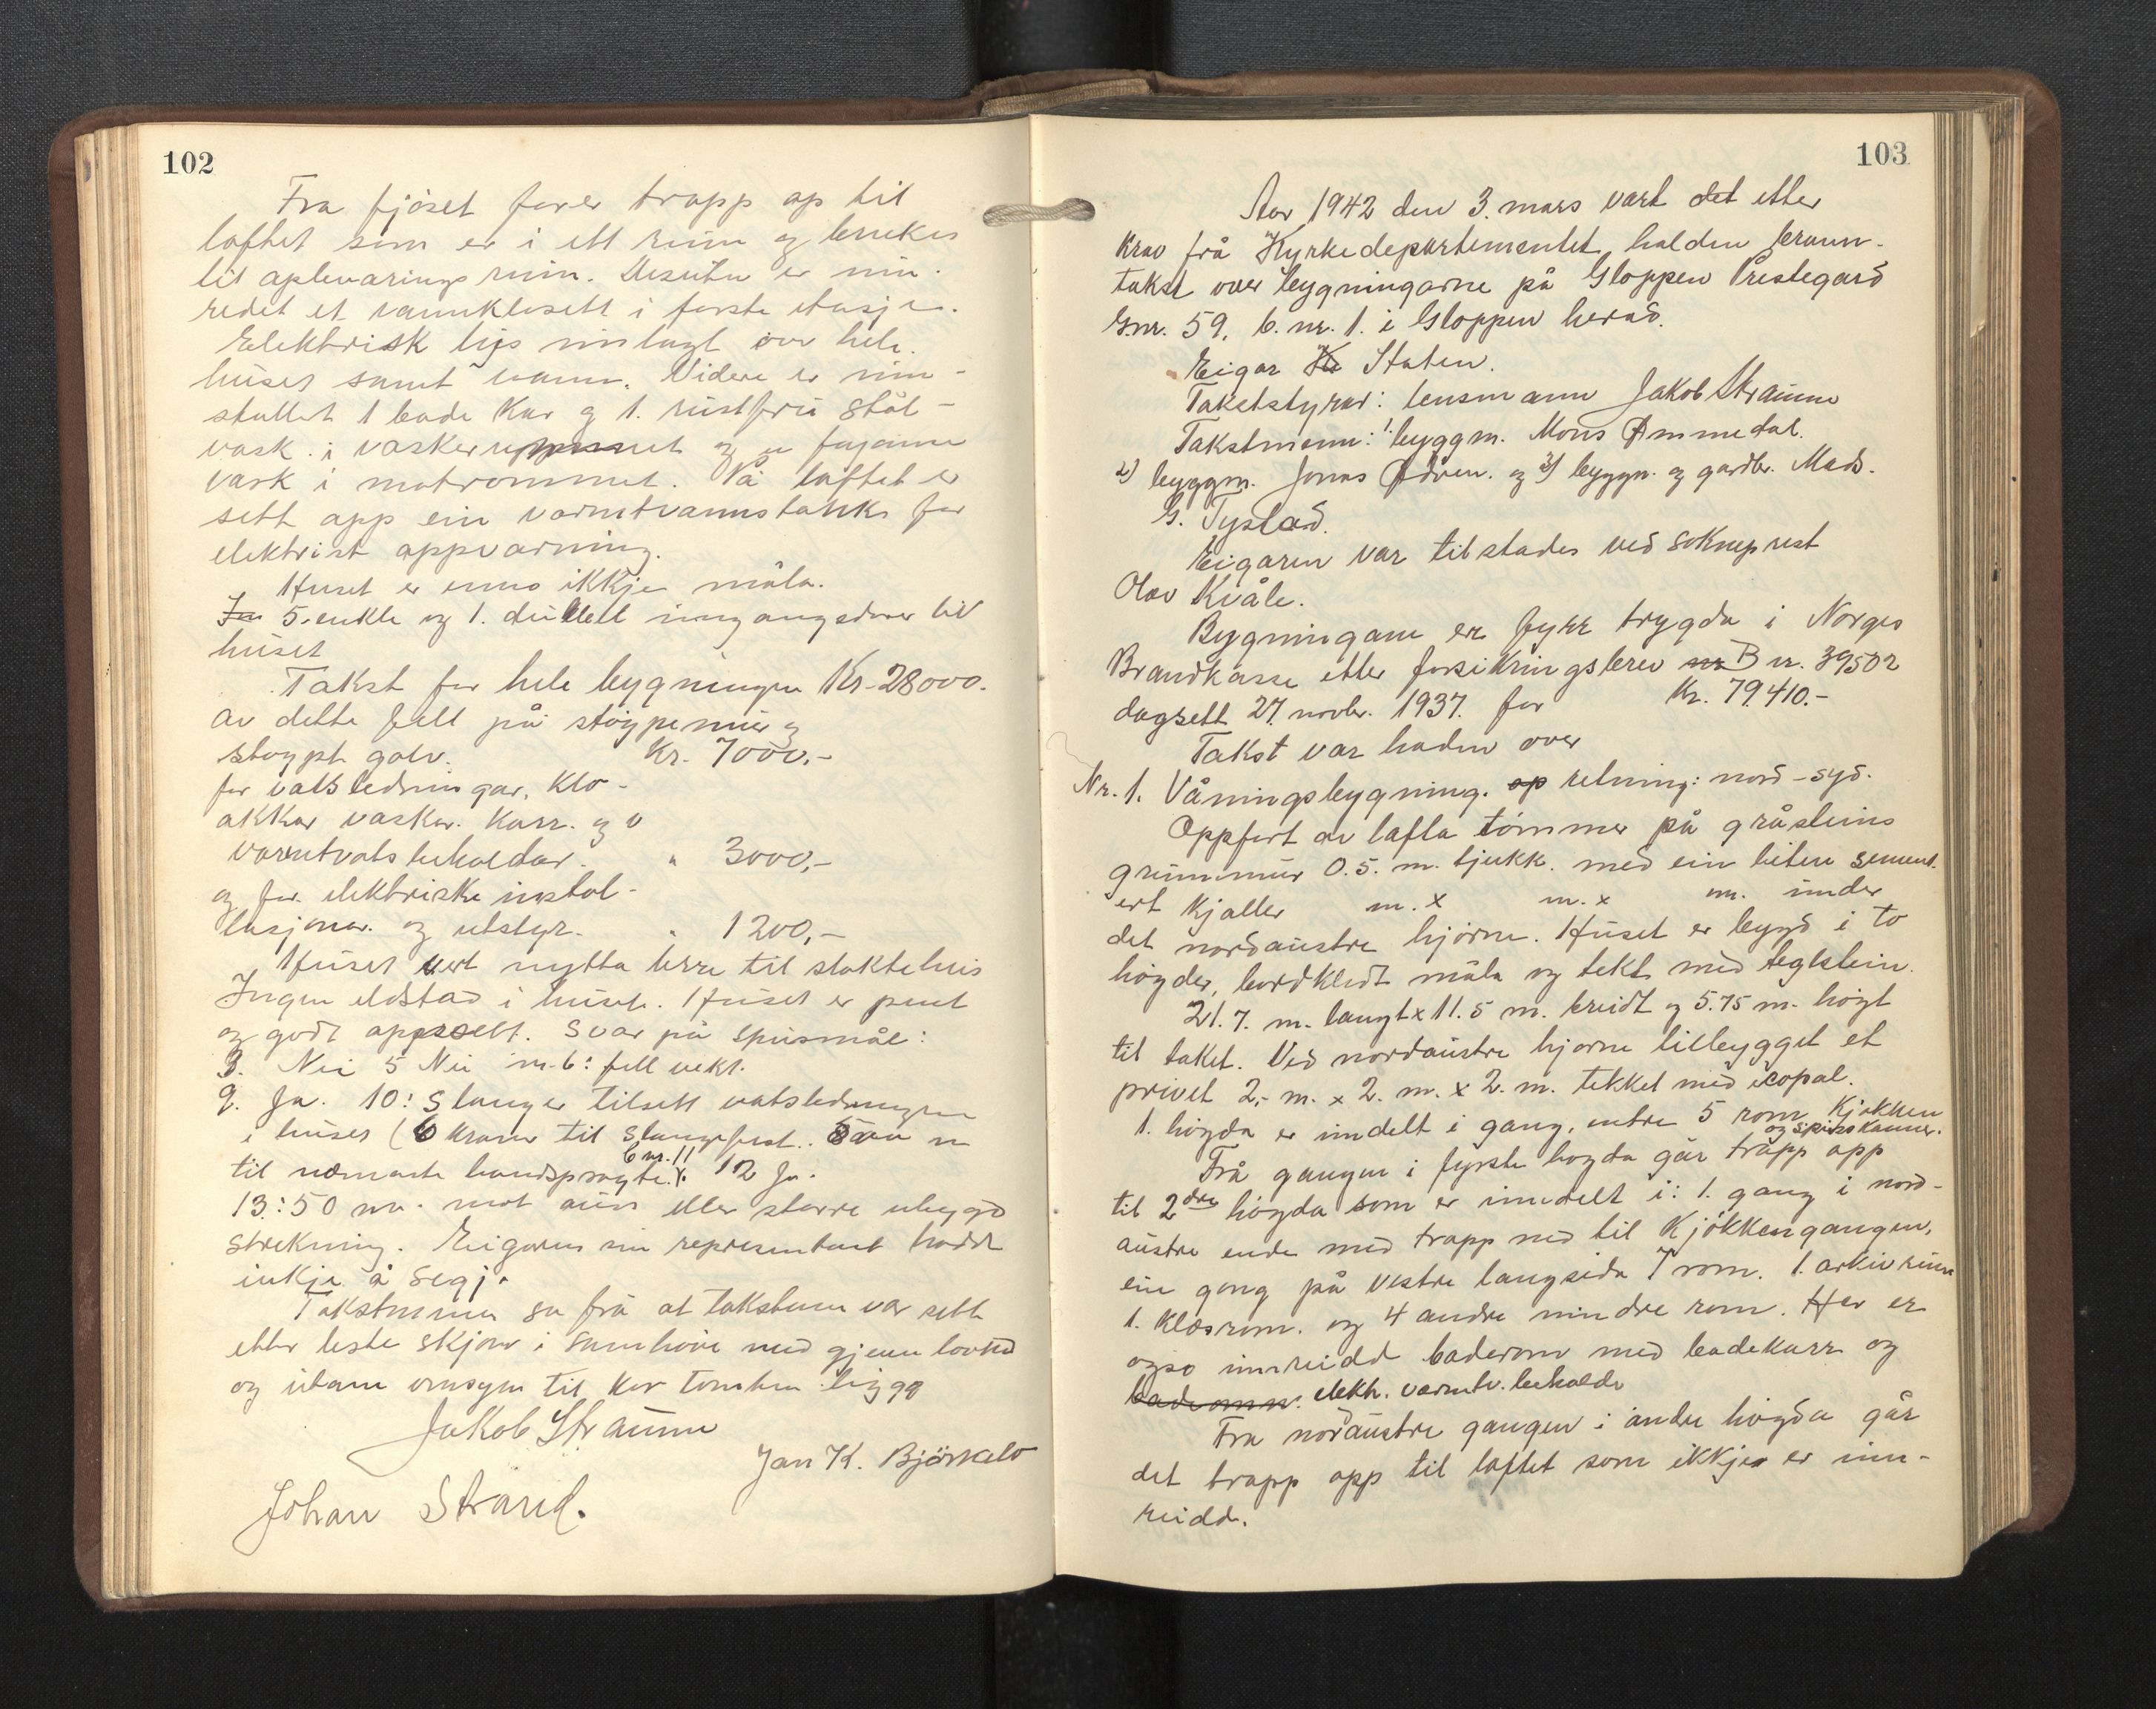 102
Fra fjøset fører trapp op til
loftet som er i ett rum og brukes
til oplevarings rum. Desuten er inn-
redet et vannklosett i første etasje.
Elektrisk ljs innlagt over hele
huset samt vann. Videre er inn-
stallert 1 bade Kar og 1. rustfrie stål-
vask i vaskerummet og fajance
vask i matrommet. På loftet er
sett opp ein varmtvannstank for
elektrisk oppvarming.
Huset er enno ikkje måla.
5. enkle og 1. dubbell inngangsdører til
huset
Takst for hele bygningen Kr. 28000.
Av dette fell på støypemur og
støypt golv. Kr. 7000,-
for vatsledningar, Klo-
akkar vaskar. Karr. og
varmtvatsbehaldar. " 3000,-
og for elektriske instal-
lasjonar. og utstyr. " 1200,-
Huset vert nytta berre til slaktehus
Ingen eldstad i huset. Huset er pent
og godt oppsett. Svar på spursmål:
3. Nei 5 Nei nr. 6: fell vekk.
9. Ja. 10: Slanger tilsett vatsledningen
i huset (6 kraner til slangefest. m
til næmaste handsprøyte. b nr. 11 12 Ja.
13: 50 m. mot aus eller større ubygd
strekning. Eigarens representant hadde
inkje å segj.
Takstmenn sa frå at taksten var sett
etter beste skjøn i samhøve med gjevne lovbod
og utan omsyn til kor tomten ligge
Jakob Straume
Jan K. Bjørkelo
Johan Strand.
103
Aar 1942 den 3. mars vart det etter
Krav frå Kyrkedepartementet halden brann-
takst over bygningarne på Gloppen Prestegard
Gnr. 59, b. nr. 1. i Gloppen herad.
Eigar Staten.
Takststyrar: lensmann Jakob Straume
Takstmenn: 1. byggm. Mons Ommedal.
2) byggm. Jonas Ødven. og 3) byggm. og gardbr. Mads.
G. Tystad.
Eigaren var tilstades ved sokneprest
Olav Kvåle.
Bygningane er fyrr trygda i Norges
Brandkasse etter forsikringsbrev B nr. 39502
dagsett 27. novbr. 1937. for Kr. 79.410.-
Takst var halden over
Nr. 1. Våningsbygning. op retning: nord-syd.
Oppført av lafta tømmer på gråsteins
grunnmur 0.5. m. tjukk. med ein liten sement-
ert Kjeller m. x m. x m. under
det nordaustre hjørne. Huset er bygd i to
høgder, bordkledt måla og tekt med teglstein.
21. 7. m. langt x 11. 5 m. breidt og 5.75 m. høgt
til taket. Ved nordaustre hjørne tilbygget et
privet 2,- m. x 2. m. x 2. m. tekket med icopal.
1. høgda er inndelt i gang, entre 5 rom, Kjøkken
og spiskammer.
Frå gangen i fyrste høgda går trapp opp
til 2dre høgda som er inndelt i: 1. gang i nord-
austre ende med trapp ned til Kjøkkengangen,
ein gong på vestre langsida 7 rom. 1. arkivrum
1. Klæsrom. og 4 andre mindre rom. Her er
ogso innreidd baderom med badekarr og
badeomn. elektr. varmtv. behalde
Fra nordaustre gangen i andre høgda går
det trapp opp til loftet som ikkje er inn-
reidd.